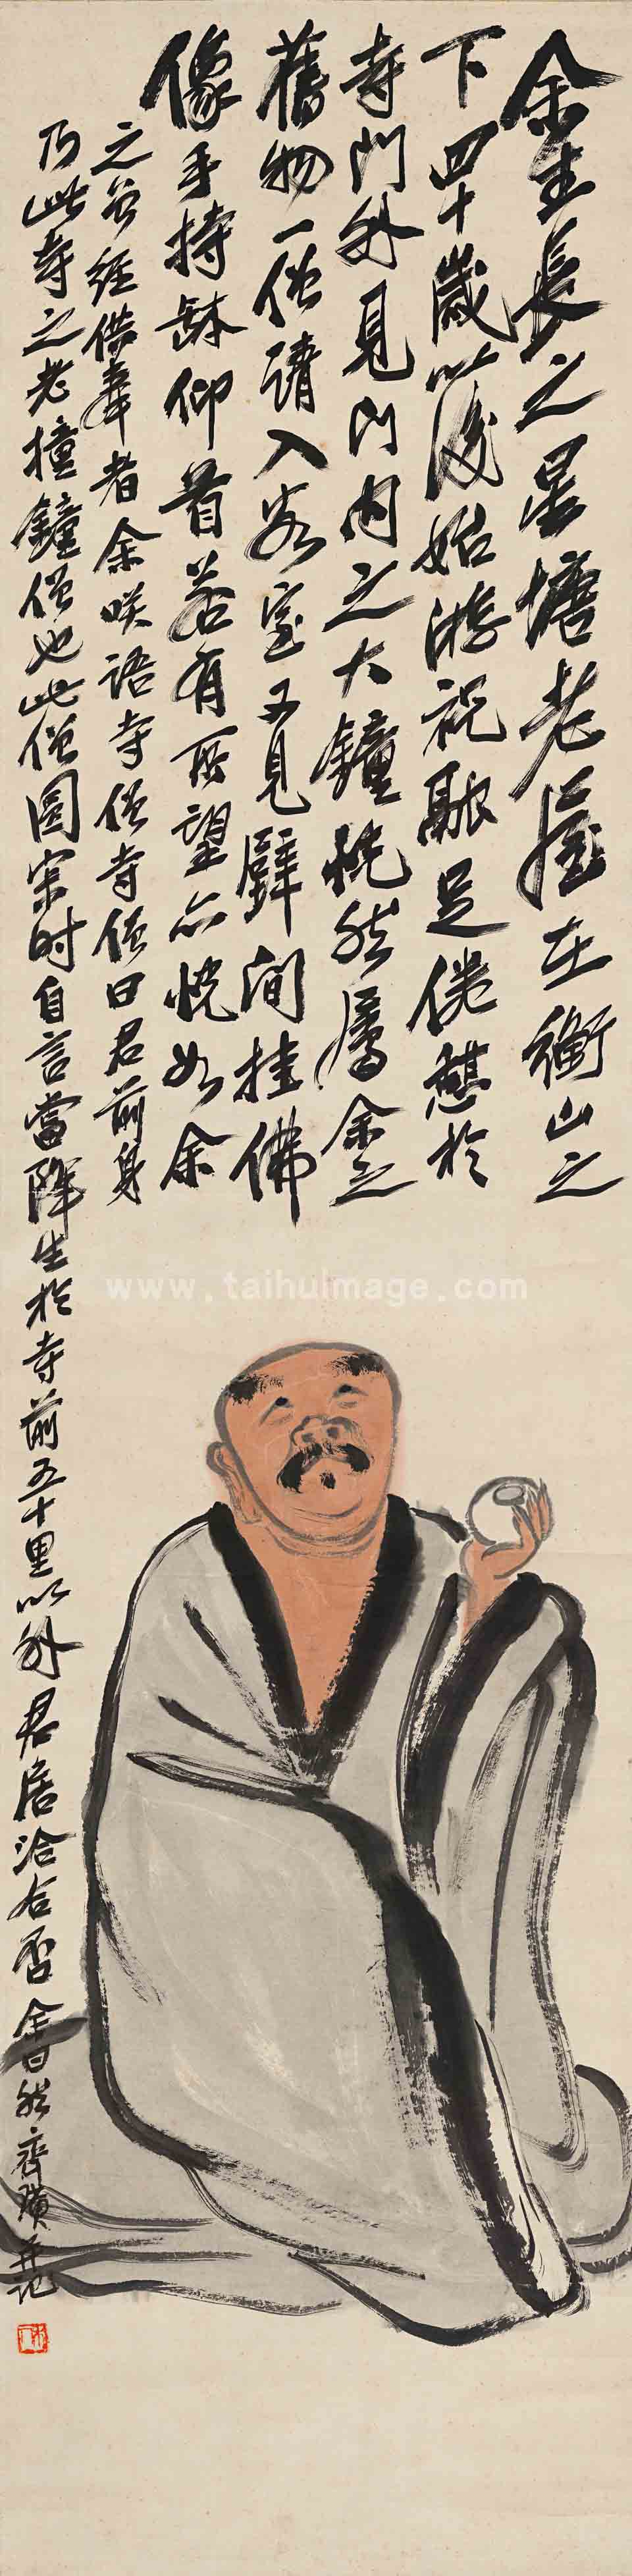 余生長之星塘老屋在衡山之
下四十歲以後始游祝融足倦憩於
寺門外見門内之大鐘恍然屬余之
舊物一僧請入客室又見壁間挂佛
像手持缽仰首若有所望亦恍如余
之曾經供奉者余咲語寺僧寺僧曰君前身
乃此寺之老撞鐘僧也此僧圓寂时自言當降生於寺前五十里以外君居洽合否余曰然齊璜并記
www.taihuimage.com